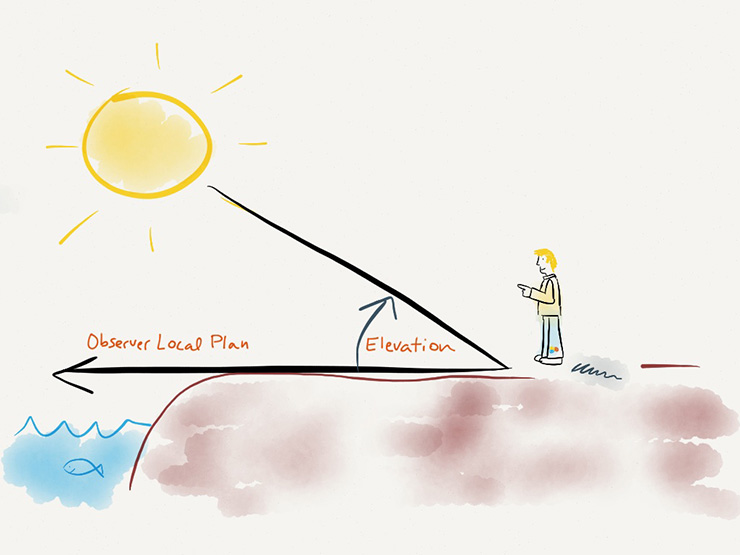 Observer Local Plan
Elevation